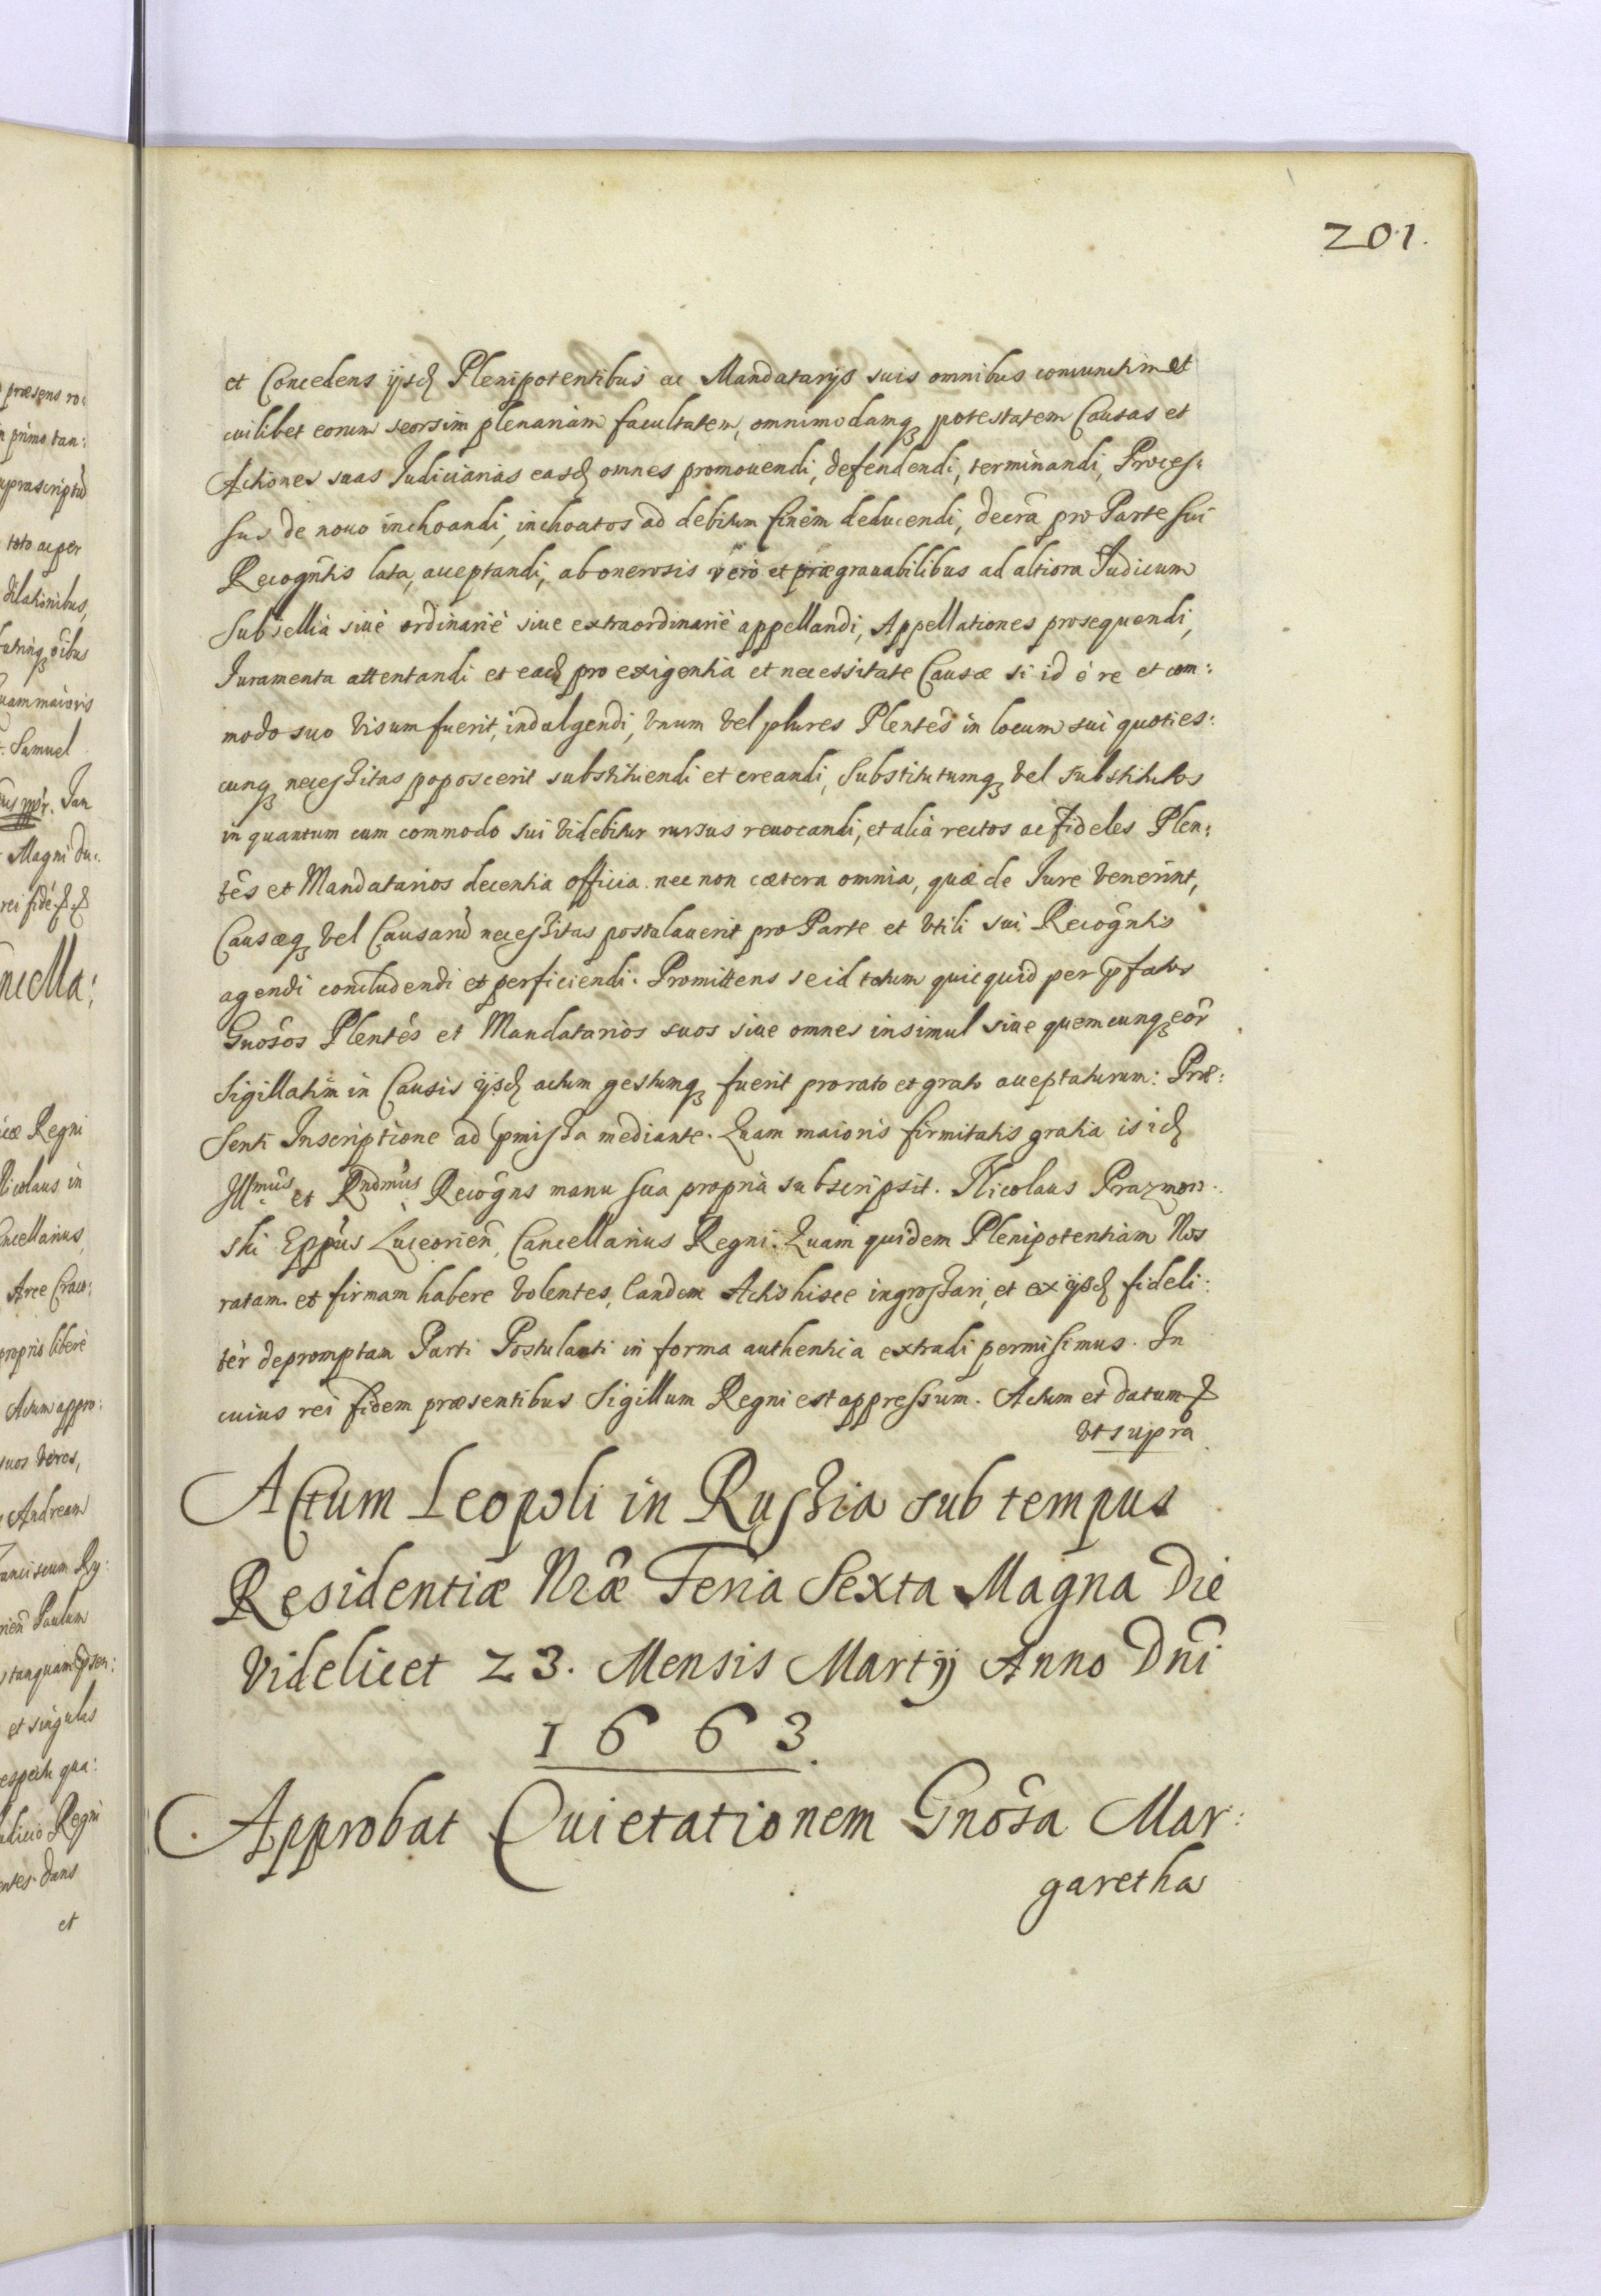 201.
et Concedens ijsd Plenipotentibus ac Mandatarijs suis omnibus coniunctim et
cuilibet eorum seorsim plenariam facultatem, omnimodamq3 potestatem Causas et
Actiones suas Iudiciarias easd omnes promouendi, defendendi, terminandi, Proces:
sus de nouo inchoandi, inchoatos ad debitum finem deducendi, decrã pro Parte sui
Recogñtis lata, acceptandi, ab onerosis vero et prægrauabilibus ad altiora Iudicum
Subsellia siuè ordinariè siue extraordinariè appellandi, Appellationes prosequendi,
Iuramenta attentandi et ead pro exigentia et necessitate Causæ si id è re et com:
modo suo visum fuerit, indulgendi, vnum vel plures Plentês in locum sui quoties:
cunq3 necessitas poposcerit substituendi et creandi, Substitutumq3 vel substitutos
in quantum cum commodo sui videbitur rursus reuocandi, et aliâ rectos ac fideles Plen:
tês et Mandatarios decentia officia nec non cætera omnia, quæ de Iure venerint,
Causæq3 vel Causarũ necessitas postulauerit pro Parte et vtili sui Recogñtis
agendi concludendi et perficiendi. Promittens se id totum quicquid per pfatos
Gnôsos Plentês et Mandatarios suos siue omnes insimul siue quemcunq3 eôr
Sigillatim in Causis ijsd actum gestumq3 fuerit pro rato et grato acceptaturum: Præ:
senti Inscriptione ad pmissa mediante. Quam maioris firmitatis gratia is id
Illmûs et Rndmûs Recogñs manu sua propria subscripsit. Nicolaus Prazmow:
ski Eppûs Luceorień, Cancellarius Regni. Quam quidem Plenipotentiam Nos
ratam et firmam habere volentes, Eandem Actis hisce ingrossari, et ex ijsd fideli:
tèr depromptam Parti Postulanti in forma authentica extradi permisimus. In
cuius rei fidem præsentibus Sigillum Regni est appressum. Actum et datum &
vt supra
Actum Leopoli in Russia sub tempus
Residentiæ Nrâæ Feria Sexta Magna Die
Videlicet 23. Mensis Martij Anno Dñi
1663.
Approbat Quietationem Gnôsa Mar:
garetha